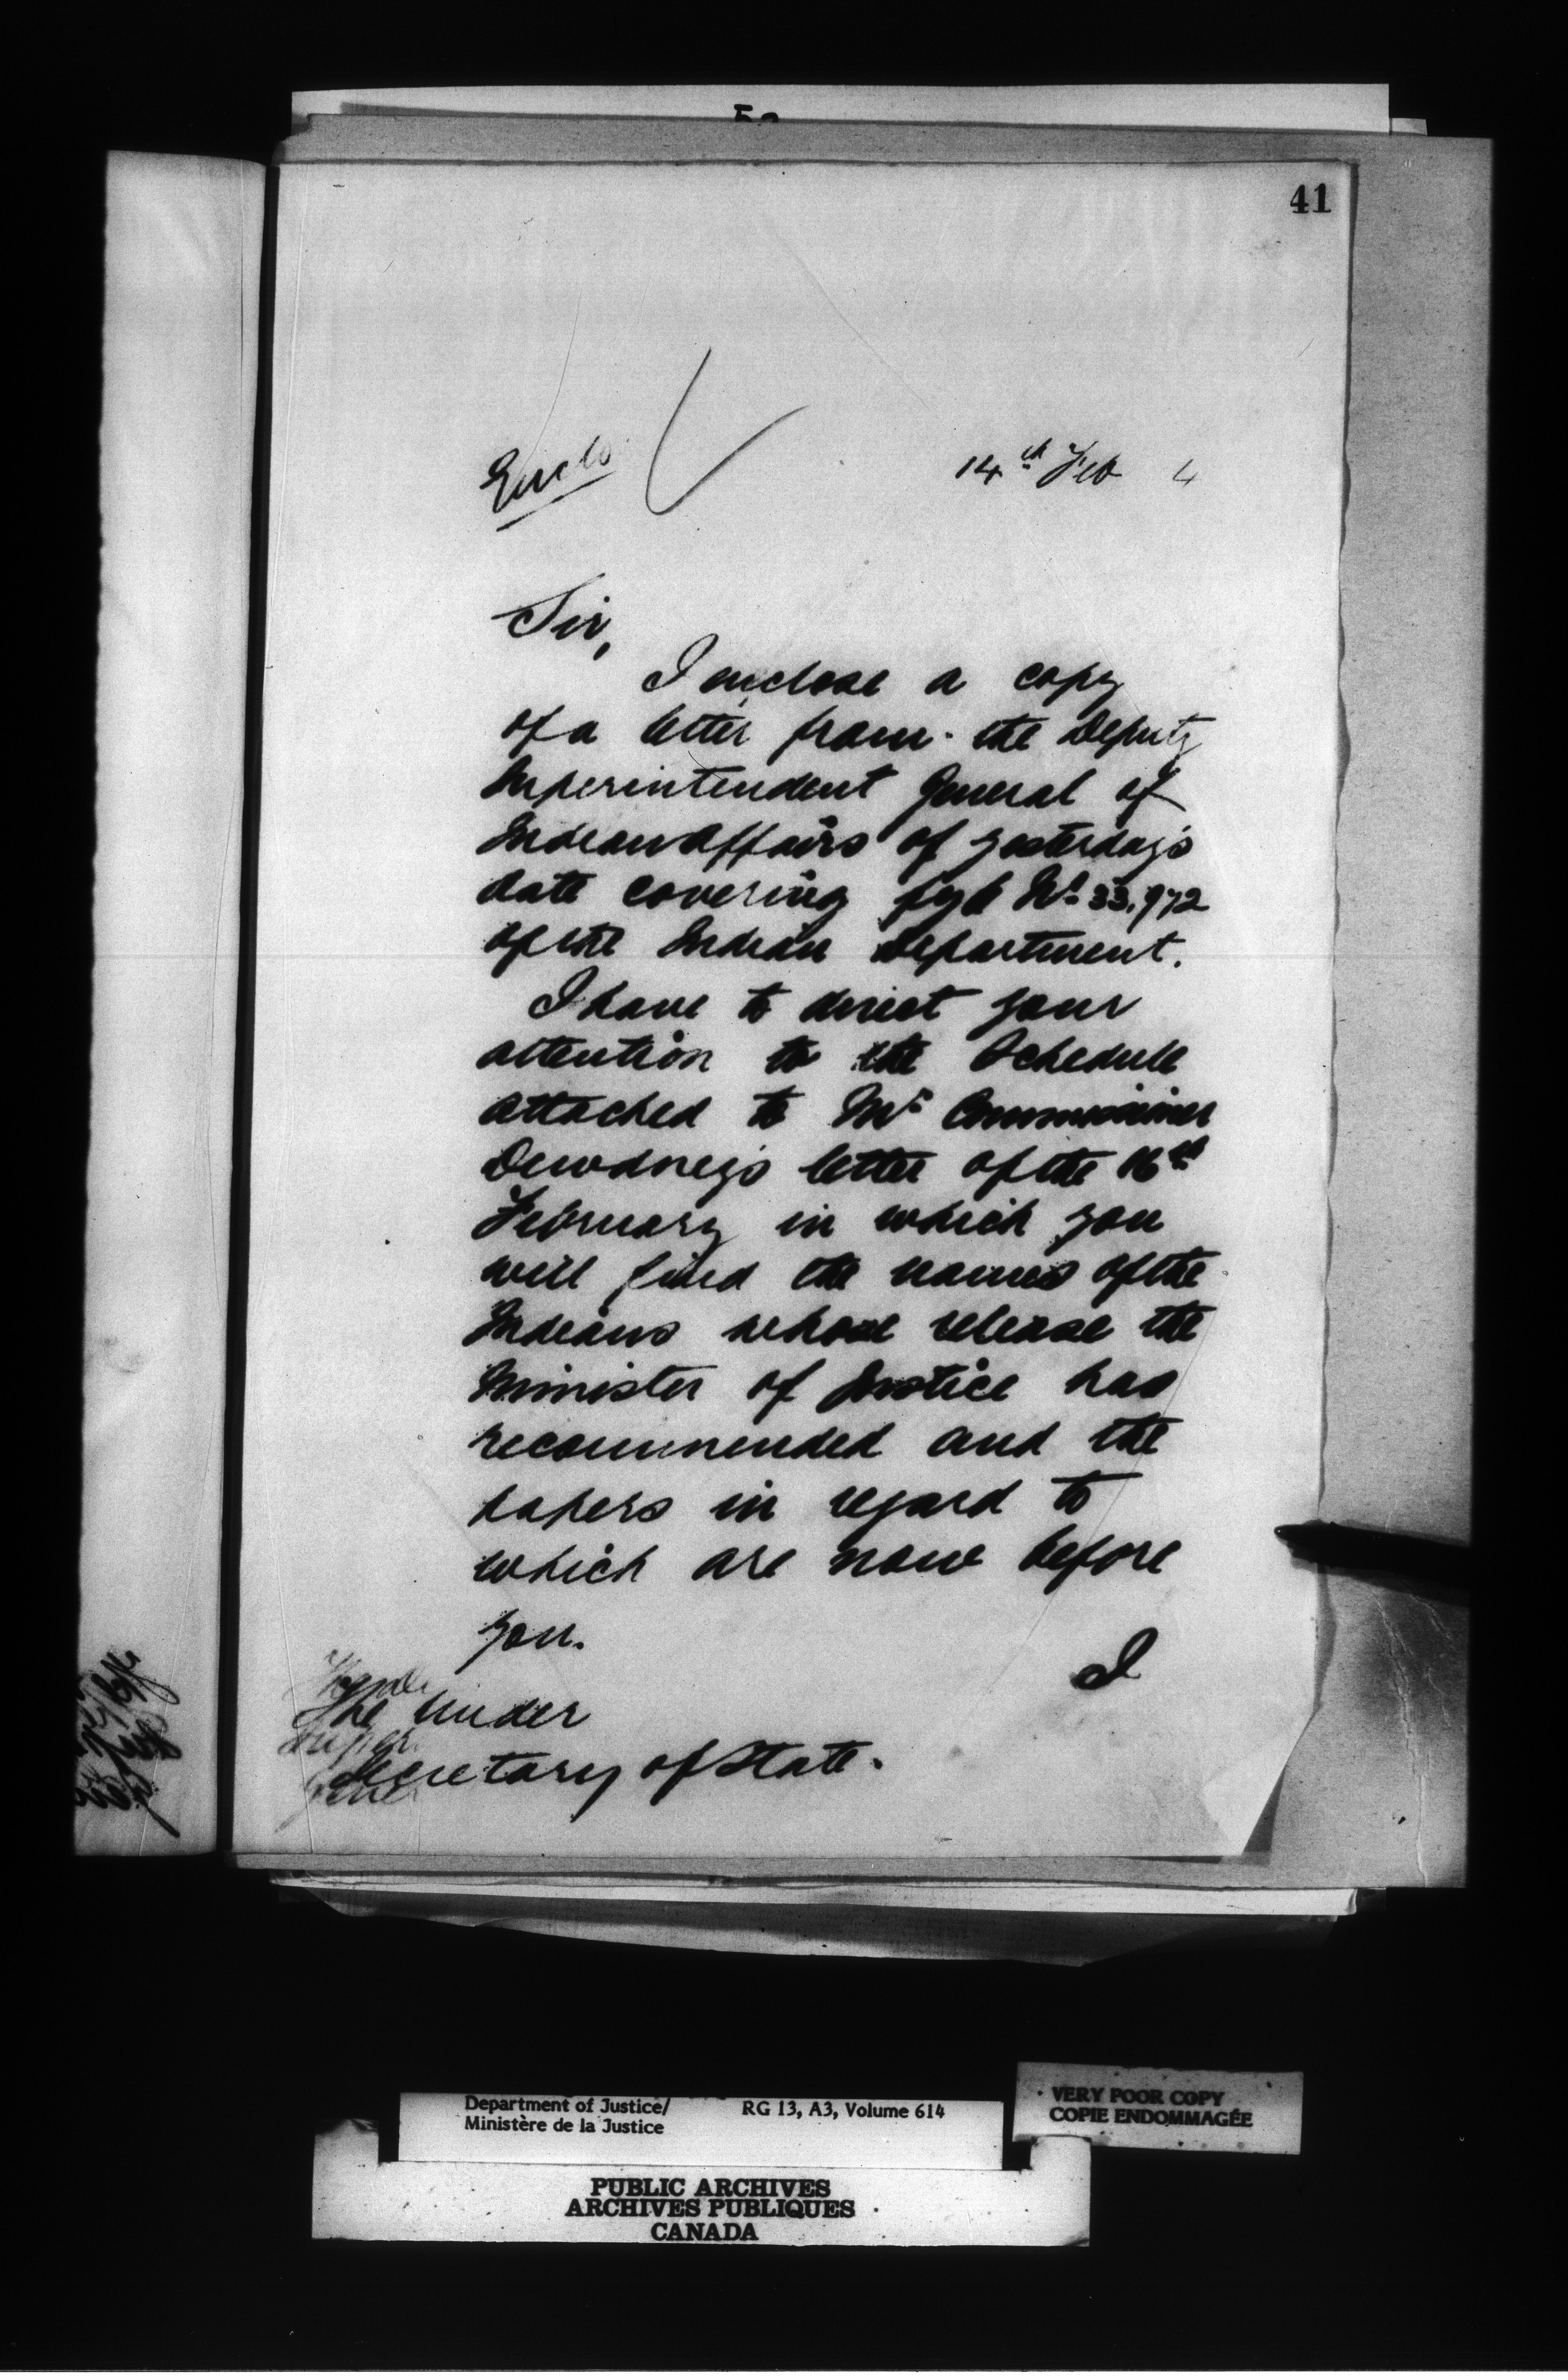 41
Enclo
14th Feb 4
Sir,
I enclose a copy
of a letter from the Deputy
Superintendent General of
Indian Affairs of yesterday's
date covering fyle No 33,972
of the Indian Department.
I have to direct your
attention to the Schedule
attached to Mr Commissioner
Dewdney's letter of the 16th
February in which you
will find the names of the
Indians whose release the
Minister of Justice has
recommended and the
papers in regard to
which are now before
you.
I
The Under
Secretary of State.
Department of Justice/
Ministère de la Justice
RG 13, A3, Volume 614
VERY POOR COPY
COPIE ENDOMMAGÉE
PUBLIC ARCHIVES
ARCHIVES PUBLIQUES
CANADA